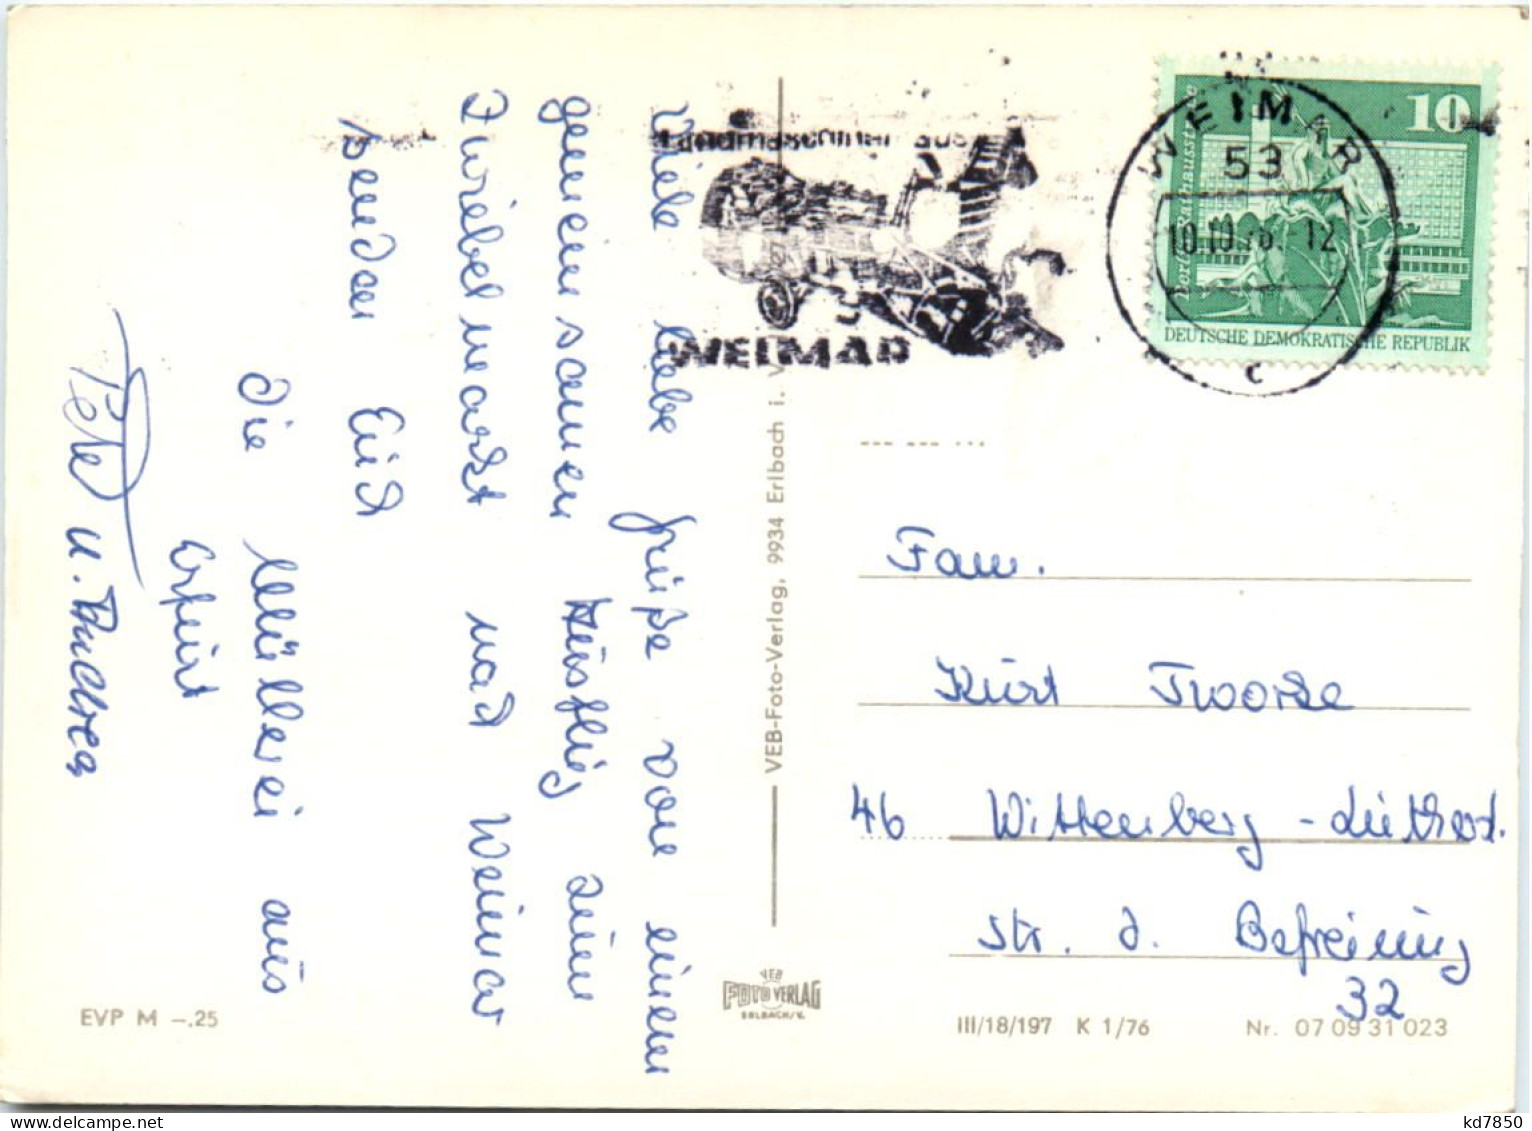 Viele liebe Grüße von einem
gemeinsamen Ausflug zum
Zwiebelmarkt nach Weimar
senden Euch
Die Müllerei aus
Erfurt
Peter u. Andrea
VEB-Foto-Verlag, 9934 Erlbach i. V.
VEB
FOTO VERLAG
ERLBACH/V.
EVP M –.25
Landmaschinen aus
WEIMAR
WEIMAR
53
10.10.76. 12
c
10
DEUTSCHE DEMOKRATISCHE REPUBLIK
Fam.
Kurt Tworke
46 Wittenberg - Lutherst.
Str. d. Befreiung
32
III/18/197 K 1/76
Nr. 07 09 31 023
kd7850